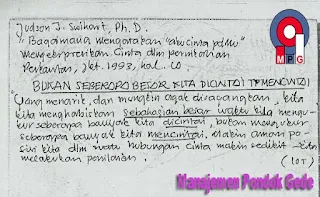 Judson J. Swihart, Ph. D.
Bagaimana mengatakan "aku cinta pdmu"
Mengekspresikan Cinta dlm pernikahan
jkt. 1993, hal. 60
BUKAN SEBERAPA BESAR KITA DICINTAI TP MENCINTAI
"Yang menarik, dan mungkin agak disayangkan, kita
kita menghabiskan sebahagian besar waktu kita mengu-
kur seberapa banyak kita dicintai, bukan mengukur
seberapa banyak kita mencintai. Makin aman po-
sisi kita dlm suatu hubungan cinta makin sedikit kita
melakukan penilaian.
MPG
Manajemen Pondok Gede